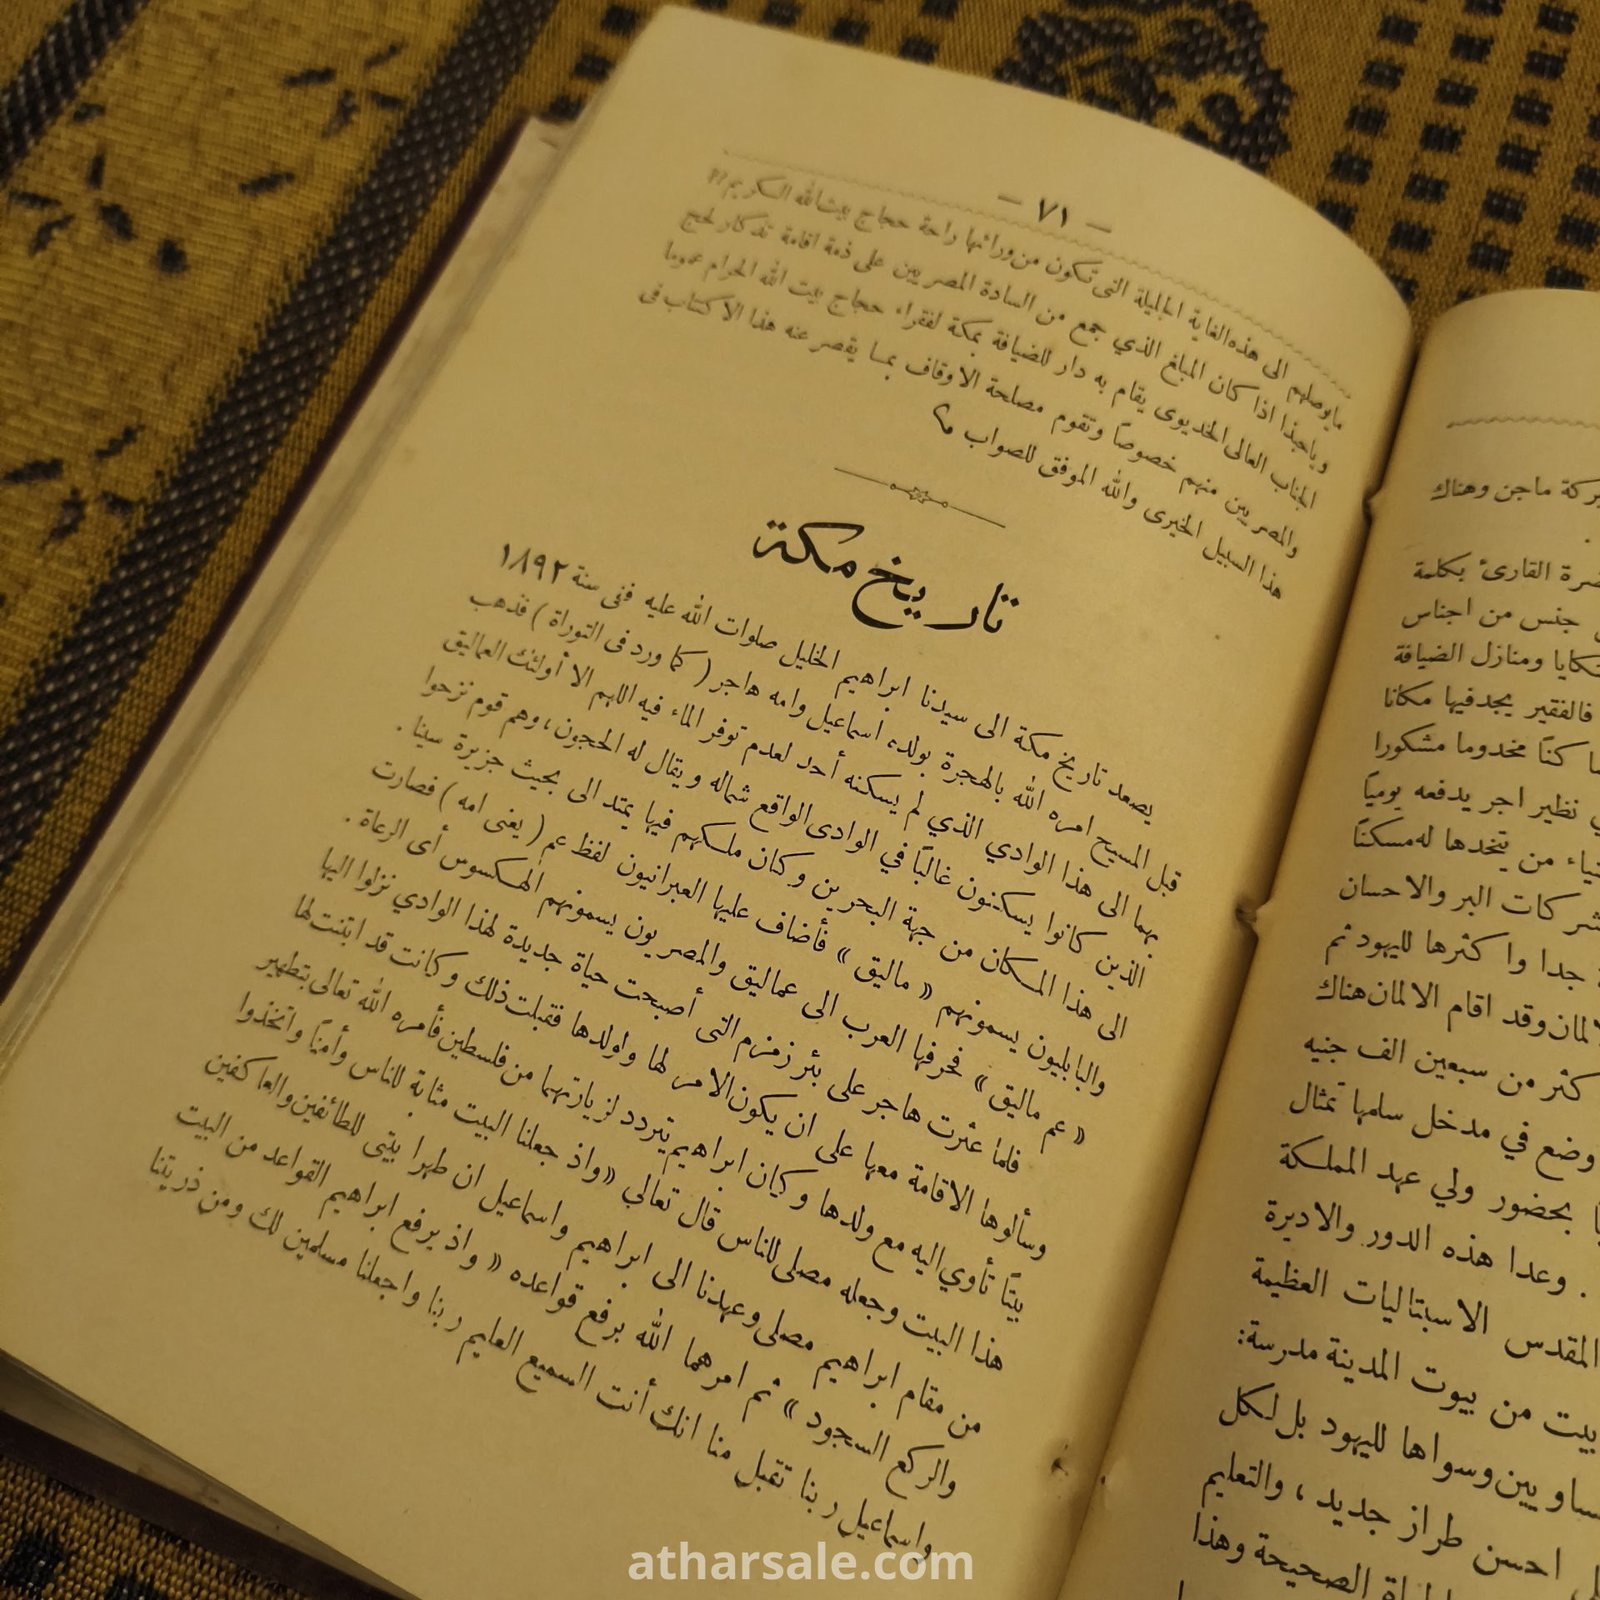 — ٧١ —
ما يوصلهم الى هذه الغاية الجليلة التى تكون من ورائها راحة حجاج بيت الله الكريم؟؟
وياحبذا اذا كان المبلغ الذي جمع من السادة المصريين على ذمة اقامة تذكار لحج
الجناب العالى الخديوى يقام به دار للضيافة بمكة لفقراء حجاج بيت الله الحرام عموما
والمصريين منهم خصوصًا وتقوم مصلحة الاوقاف بما يقصر عنه هذا الاكتتاب فى
هذا السبيل الخيرى والله الموفق للصواب
تاريخ مكة
يصعد تاريخ مكة الى سيدنا ابراهيم الخليل صلوات الله عليه ففى سنة ١٨٩٢
قبل المسيح امره الله بالهجرة بولده اسماعيل وامه هاجر ( كما ورد فى التوراة ) فذهب
بهما الى هذا الوادي الذي لم يسكنه أحد لعدم توفر الماء فيه اللهم الا أولئك العماليق
الذين كانوا يسكنون غالبًا في الوادى الواقع شماله ويقال له الحجون ، وهم قوم نزحوا
الى هذا المكان من جهة البحرين وكان ملكهم فيها يمتد الى بحيث جزيرة سينا .
والبابليون يسمونهم « ماليق » فأضاف عليها العبرانيون لفظ عم ( يعنى امه ) فصارت
« عم ماليق » فحرفها العرب الى عماليق والمصريون يسمونهم الهكسوس أى الرعاة .
فلما عثرت هاجر على بئر زمزم التى أصبحت حياة جديدة لهذا الوادي نزلوا اليها
وسألوها الاقامة معها على ان يكون الامر لها ولولدها فقبلت ذلك وكانت قد ابتنت لها
بيتًا تأوي اليه مع ولدها وكان ابراهيم يتردد لزيارتهما من فلسطين فأمره الله تعالى بتطهير
هذا البيت وجعله مصلى للناس قال تعالى «واذ جعلنا البيت مثابة للناس وأمنًا واتخذوا
من مقام ابراهيم مصلى وعهدنا الى ابراهيم واسماعيل ان طهرا بيتى للطائفين والعاكفين
والركع السجود » ثم امرهما الله برفع قواعده « واذ يرفع ابراهيم القواعد من البيت
واسماعيل ربنا تقبل منا انك أنت السميع العليم ربنا واجعلنا مسلمين لك ومن ذريتنا
بركة ماجن وهناك
القارئ بكلمة
جنس من اجناس
ومنازل الضيافة
فالفقير يجد فيها مكانا
كنا مخدوما مشكورا
نظير اجر يدفعه يوميًا
من يتخدها له مسكنًا
البر والاحسان
جدا واكثرها لليهود ثم
وقد اقام الالمان هناك
من سبعين الف جنيه
وضع في مدخل سلمها تمثال
بحضور ولي عهد المملكة
. وعدا هذه الدور والاديرة
المقدس الاسبتاليات العظيمة
بيت من بيوت المدينة مدرسة:
وسواها لليهود بل لكل
احسن طراز جديد ، والتعليم
الصحيحة وهذا
atharsale.com